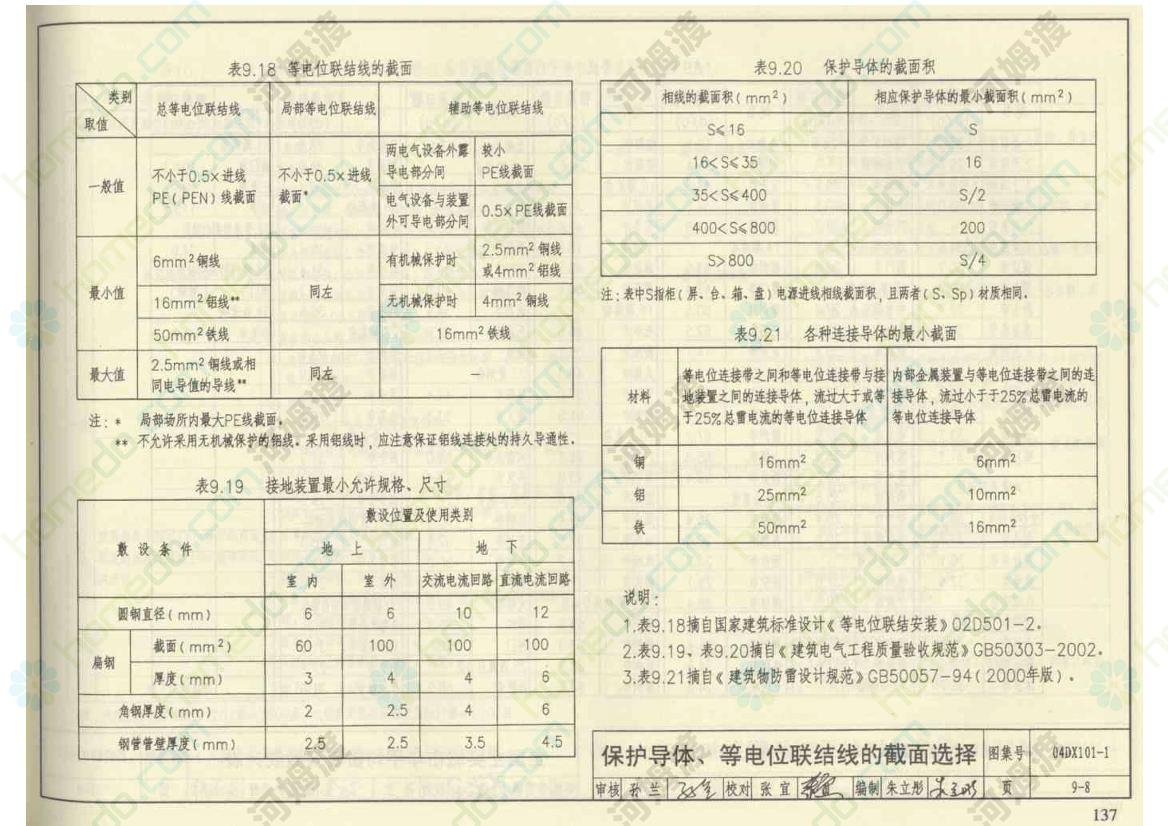 表9.18 等电位联结线的截面
类别
取值
总等电位联结线
局部等电位联结线
辅助等电位联结线
一般值
不小于0.5×进线
PE(PEN)线截面
不小于0.5×进线
截面*
两电气设备外露
导电部分间
较小
PE线截面
电气设备与装置
外可导电部分间
0.5×PE线截面
最小值
6mm²铜线
同左
有机械保护时
2.5mm²铜线
或4mm²铝线
16mm²铝线**
无机械保护时
4mm²铜线
50mm²铁线
16mm²铁线
最大值
2.5mm²铜线或相
同电导值的导线**
同左
—
注: * 局部场所内最大PE线截面。
** 不允许采用无机械保护的铝线。采用铝线时,应注意保证铝线连接处的持久导通性。
表9.19 接地装置最小允许规格、尺寸
敷设条件
敷设位置及使用类别
地上
地下
室内
室外
交流电流回路
直流电流回路
圆钢直径(mm) 6 6 10 12
扁钢
截面(mm²) 60 100 100 100
厚度(mm) 3 4 4 6
角钢厚度(mm) 2 2.5 4 6
钢管管壁厚度(mm) 2.5 2.5 3.5 4.5
表9.20 保护导体的截面积
相线的截面积(mm²) 相应保护导体的最小截面积(mm²)
S≤16 S
16<S≤35 16
35<S≤400 S/2
400<S≤800 200
S>800 S/4
注:表中S指柜(屏、台、箱、盘)电源进线相线截面积,且两者(S、Sp)材质相同。
表9.21 各种连接导体的最小截面
材料
等电位连接带之间和等电位连接带与接
地装置之间的连接导体,流过大于或等
于25%总雷电流的等电位连接导体
内部金属装置与等电位连接带之间的连
接导体,流过小于于25%总雷电流的
等电位连接导体
铜 16mm² 6mm²
铝 25mm² 10mm²
铁 50mm² 16mm²
说明:
1.表9.18摘自国家建筑标准设计《等电位联结安装》02D501-2。
2.表9.19、表9.20摘自《建筑电气工程质量验收规范》GB50303-2002。
3.表9.21摘自《建筑物防雷设计规范》GB50057-94(2000年版)。
保护导体、等电位联结线的截面选择 图集号 04DX101-1
审核 孙兰 校对 张宜 编制 朱立彤 页 9-8
137
homedo.com
河姆渡